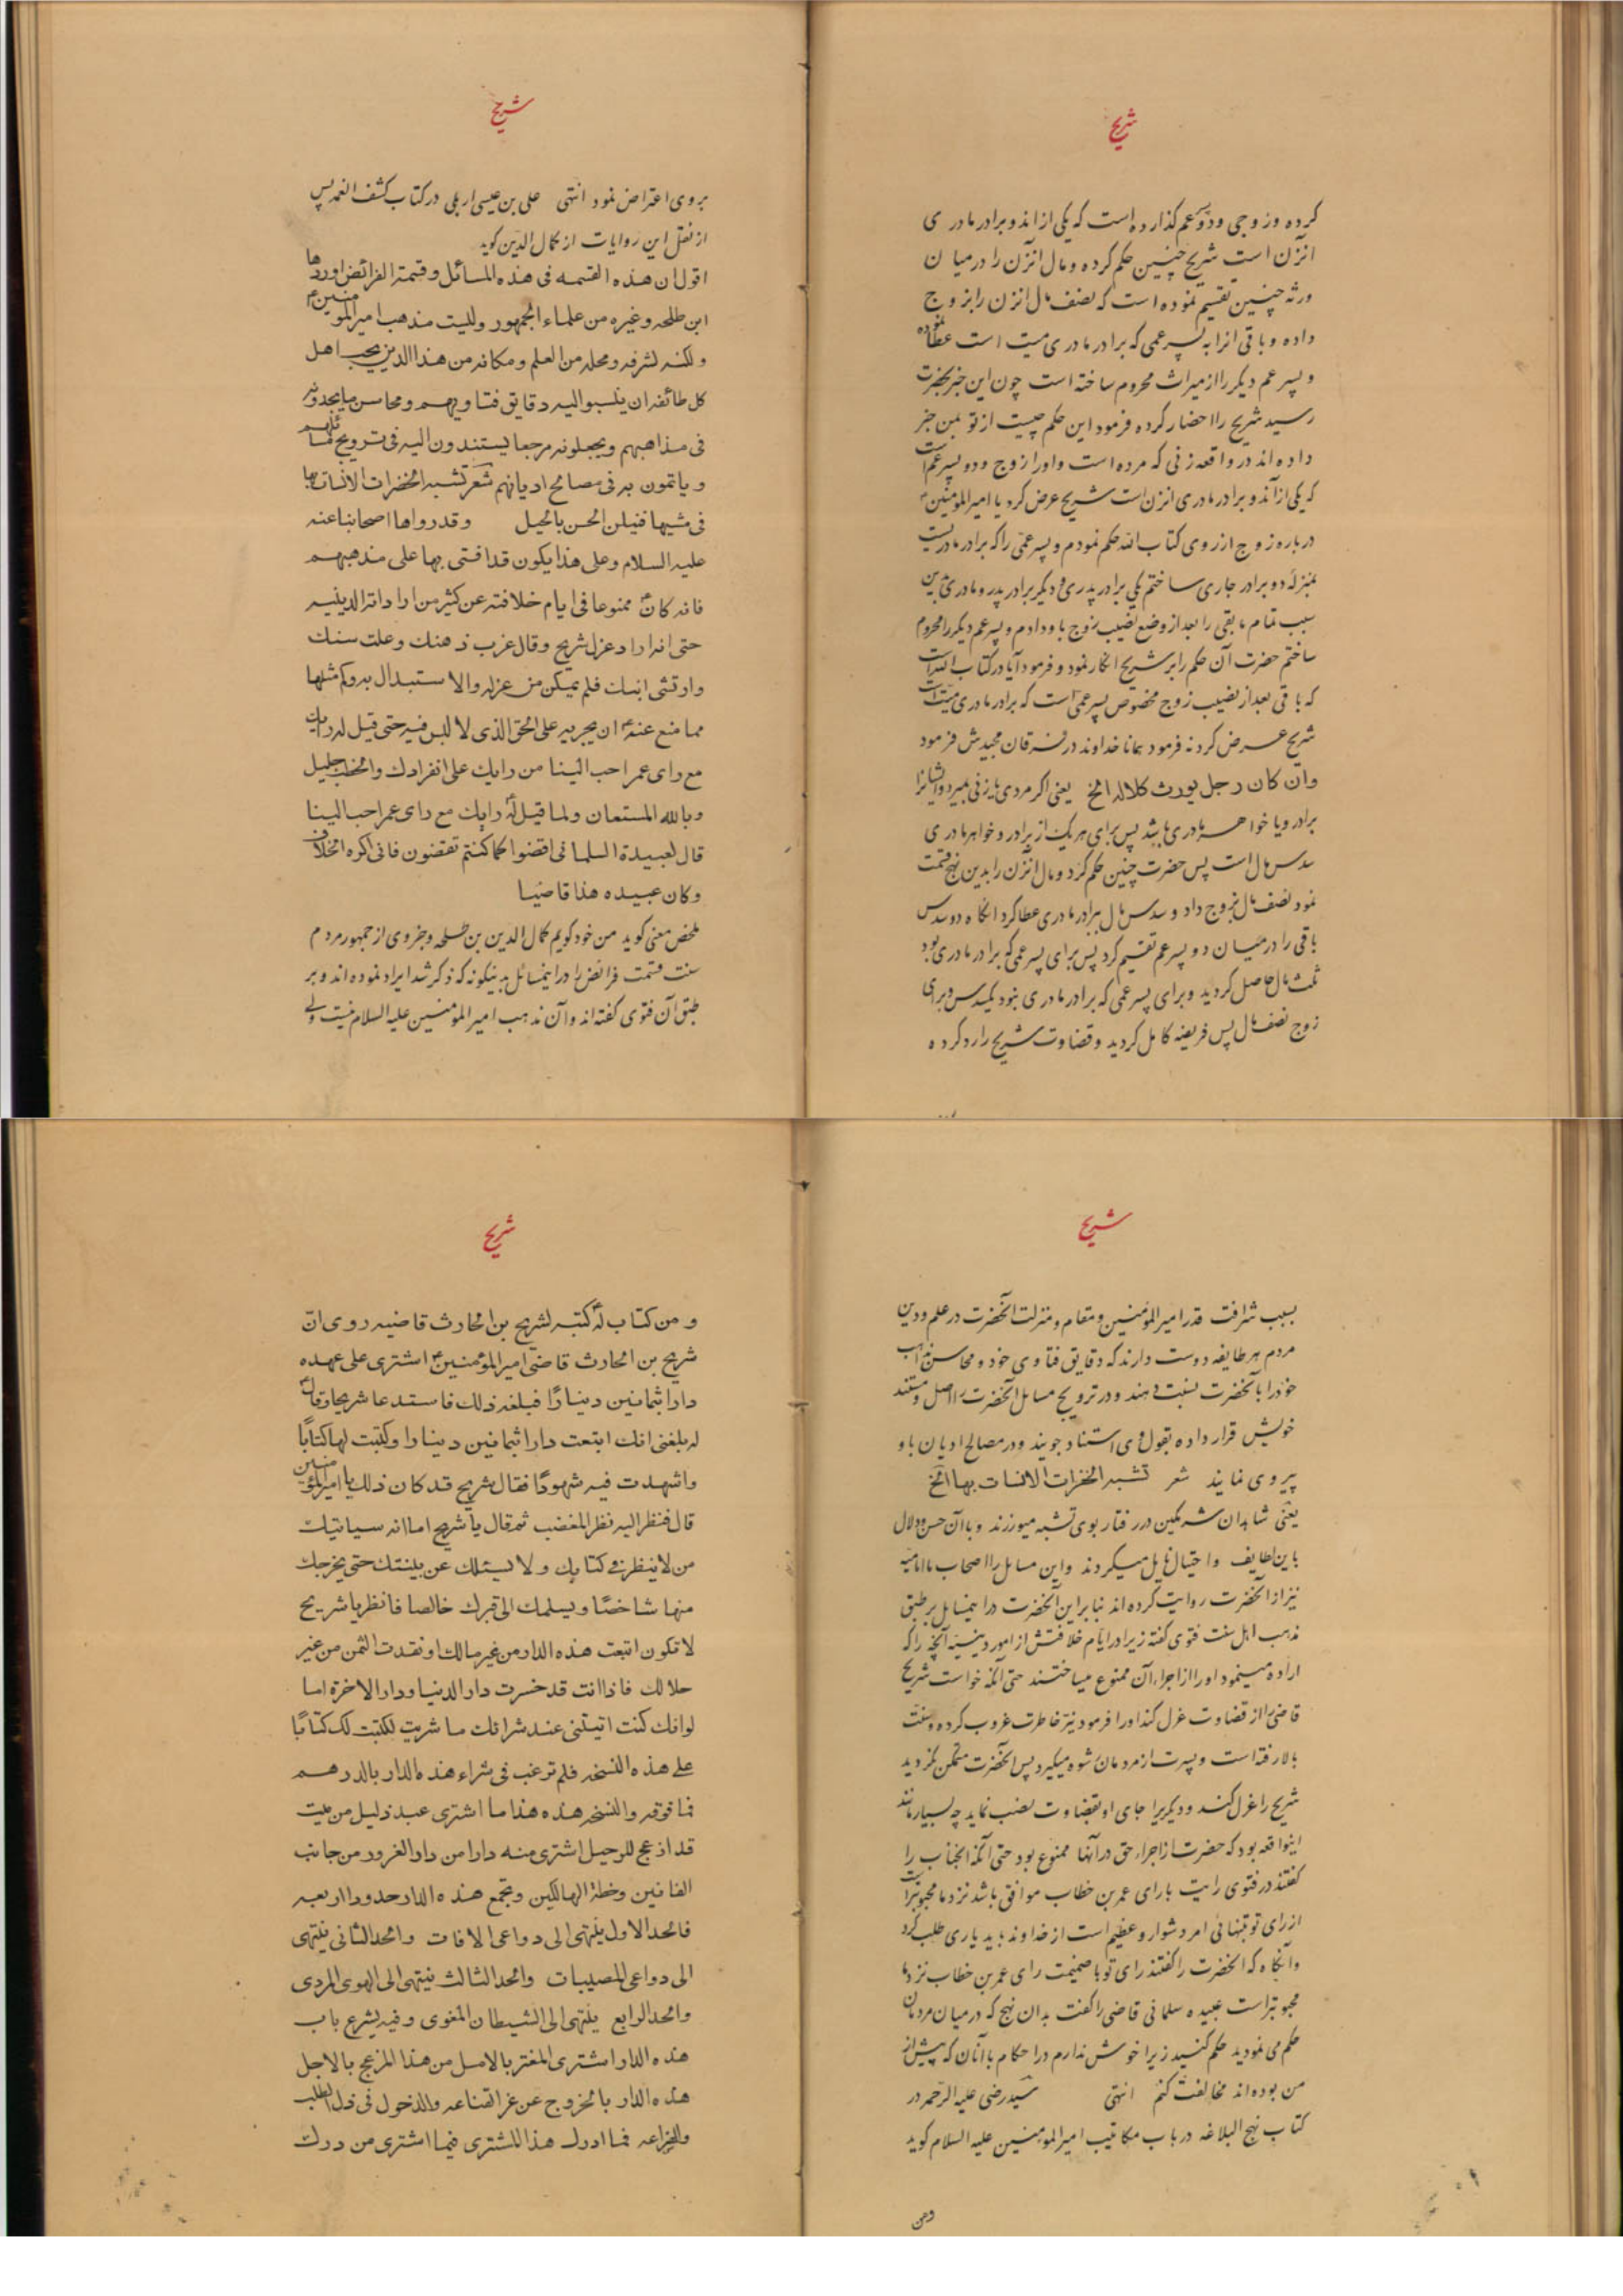 شریح
کرده و زوجی و دو پسر عم گذارده است که یکی از اندو برادر مادری
انزن است شریح چنین حکم کرده و مال انزن را در میان
ورثه چنین تقسیم نموده است که نصف مال انزن را بزوج
داده و باقی انرا به پسر عمی که برادر مادری میت است عطا نموده
و پسر عم دیگر را از میراث محروم ساخته است چون این خبر بحضرت
رسید شریح را احضار کرده فرمود این حکم چیست از تو بمن خبر
داده اند در واقعه زنی که مرده است و او را زوج و دو پسر عم است
که یکی از آندو برادر مادری انزن است شریح عرض کرد یا امیر المؤمنین
درباره زوج از روی کتاب الله حکم نمودم و پسر عمی را که برادر مادریست
بمنزله دو برادر جاری ساختم یکی برادر پدری و دیگر برادر پدر و مادری بدین
سبب تمام مابقی را بعد از وضع نصیب زوج باو دادم و پسر عم دیگر را محروم
ساختم حضرت آن حکم را بر شریح انکار نمود و فرمود آیا در کتاب الله است
که باقی بعد از نصیب زوج مخصوص پسر عمی است که برادر مادری میت است
شریح عرض کرد نه فرمود همانا خداوند در فرقان مجیدش فرمود
وان كان رجل يورث كلاله الخ یعنی اگر مردی یا زنی بمیرد و ایشانرا
برادر و یا خواهر مادری باشد پس برای هر یک از برادر و خواهر مادری
سدس مال است پس حضرت چنین حکم کرد و مال انزن را بدین نهج قسمت
نمود نصف مال بزوج داد و سدس مال ببرادر مادری عطا کرد انگاه دو سدس
باقی را در میان دو پسر عم تقسیم کرد پس برای پسر عمی که برادر مادری بود
ثلث مال حاصل گردید و برای پسر عمی که برادر مادری نبود یکسدس و برای
زوج نصف مال پس فریضه کامل گردید و قضاوت شریح را رد کرده
شریح
بروی اعتراض نمود انتهی علی بن عیسی اربلی در کتاب کشف الغمه پس
از نقل این روایات از کمال الدین گوید
اقول ان هذه القسمه فى هذه المسائل وقسمة الفرائض اوردها
ابن طلحه وغيره من علماء الجمهور وليست مذهب امير المؤمنين
ولكنه لشرفه ومحله من العلم ومكانه من هذا الدين يحب اهل
كل طائفه ان ينسبوا اليه دقايق فتاويهم ومحاسن مايجدونه
فى مذاهبهم ويجعلونه مرجعا يستندون اليه فى ترويج مسائلهم
وياتمون به فى مصالح اديانهم شعر تشبه الخفرات الانسات بها
فى مشيها فنيلن الحسن بالحيل وقد رواها اصحابنا عنه
عليه السلام وعلى هذا يكون قد افتى بها على مذهبهم
فانه كان ممنوعا فى ايام خلافته عن كثير من اراداته الدينيه
حتى انه اراد عزل شريح وقال غرب ذهنك وعلت سنك
وارتشى ابنك فلم يتمكن من عزله والاستبدال به وكم مثلها
مما منع عنه ان يجريه على الحق الذى لا لبس فيه حتى قيل له رايك
مع راى عمر احب الينا من رايك على انفرادك والخطب جليل
وبالله المستعان ولما قيل له رايك مع راى عمر احب الينا
قال لعبيدة السلمانى اقضوا كما كنتم تقضون فانى اكره الخلاف
وكان عبيده هذا قاضيا
ملخص معنی گوید من خود گویم کمال الدین بن طلحه و جز وی از جمهور مردم
سنت قسمت فرائض را در اینمسائل بدینگونه که ذکر شد ایراد نموده اند و بر
طبق آن فتوی گفته اند و آن مذهب امیر المؤمنین علیه السلام نیست ولی
شریح
بسبب شرافت قدر امیر المؤمنین و مقام و منزلت آنحضرت در علم و دین
مردم هر طایفه دوست دارند که دقایق فتاوی خود و محاسن مذاهب
خود را بآنحضرت نسبت دهند و در ترویج مسایل آنحضرت را اصل و مستند
خویش قرار داده بقول وی استناد جویند و در مصالح ادیان باو
پیروی نمایند شعر تشبه الخفرات الانسات بها الخ
یعنی شاهدان شرمگین در رفتار بوی تشبه میورزند و با آن حسن و دلال
باین لطایف و احتیال نایل میگردند و این مسایل را اصحاب ما امامیه
نیز از آنحضرت روایت کرده اند بنابراین آنحضرت در اینمسایل بر طبق
مذهب اهل سنت فتوی گفته زیرا در ایام خلافتش از امور دینیه آنچه را که
اراده مینمود او را از اجراء آن ممنوع میساختند حتی آنکه خواست شریح
قاضی را از قضاوت عزل کند او را فرمود تیز خاطرت غروب کرده و سنت
بالا رفته است و پسرت از مردمان رشوه میگیرد پس آنحضرت متمکن نگردید
شریح را عزل کند و دیگریرا جای او بقضاوت نصب نماید چه بسیار مانند
اینواقعه بود که حضرت از اجراء حق در آنها ممنوع بود حتی آنکه انجناب را
گفتند در فتوی رایت با رای عمر بن خطاب موافق باشد نزد ما محبوبتر است
از رای تو بتنهائی امر دشوار و عظیم است از خداوند باید یاری طلب کرد
و آنگاه که آنحضرت را گفتند رای تو با ضمیمت رای عمر بن خطاب نزد ما
محبوبتر است عبیده سلمانی قاضی را گفت بدان نهج که در میان مردمان
حکم می نمودید حکم کنید زیرا خوش ندارم در احکام با آنان که پیش از
من بوده اند مخالفت کنم انتهی سید رضی علیه الرحمه در
کتاب نهج البلاغه در باب مکاتیب امیر المؤمنین علیه السلام گوید
ومن
شریح
ومن كتاب له كتبه لشريح بن الحارث قاضيه روى ان
شريح بن الحارث قاضى امير المؤمنين اشترى على عهده
دارا بثمانين دينارًا فبلغه ذلك فاستدعا شريحا وقال
له بلغنى انك ابتعت دارا بثمانين دينارا وكتبت لها كتابًا
واشهدت فيه شهودًا فقال شريح قد كان ذلك يا امير المؤمنين
قال فنظر اليه نظر المغضب ثم قال يا شريح اما انه سياتيك
من لا ينظر فى كتابك ولا يسئلك عن بينتك حتى يخرجك
منها شاخصًا ويسلمك الى قبرك خالصا فانظر يا شريح
لا تكون ابتعت هذه الدار من غير مالك او نقدت الثمن من غير
حلالك فاذا انت قد خسرت دار الدنيا ودار الاخرة اما
لو انك كنت اتيتنى عند شرائك ما شريت لكتبت لك كتابًا
على هذه النسخه فلم ترغب فى شراء هذه الدار بالدرهم
فما فوقه والنسخه هذه هذا ما اشترى عبد ذليل من ميت
قد ازعج للرحيل اشترى منه دارا من دار الغرور من جانب
الفانين وخطة الهالكين وتجمع هذه الدار حدود اربعه
فالحد الاول ينتهى الى دواعى الافات والحد الثانى ينتهى
الى دواعى المصيبات والحد الثالث ينتهى الى الهوى المردى
والحد الرابع ينتهى الى الشيطان المغوى وفيه يشرع باب
هذه الدار اشترى المغتر بالامل من هذا المزعج بالاجل
هذه الدار بالخروج عن عز القناعه والدخول فى ذل الطلب
والضراعه فما ادرك هذا المشترى فيما اشترى من درك